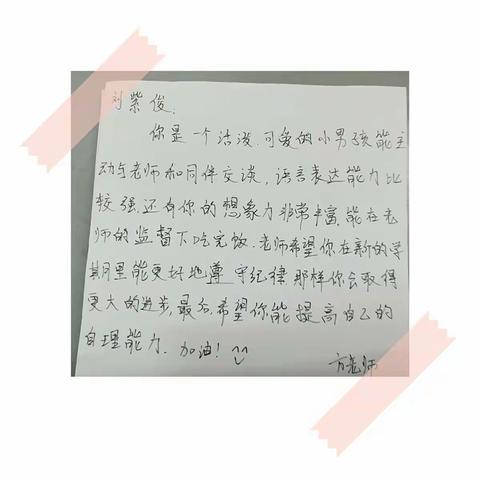 刘紫俊.
你是一个活泼.可爱的小男孩能主
动与老师和同伴交谈.语言表达能力比
较强.还有你的想象力非常丰富.能在老
师的监督下吃完饭.老师希望你在新的学
期里能更好地遵守纪律那样你会取得
更大的进步.最后.希望你能提高自己的
自理能力.加油!
方老师